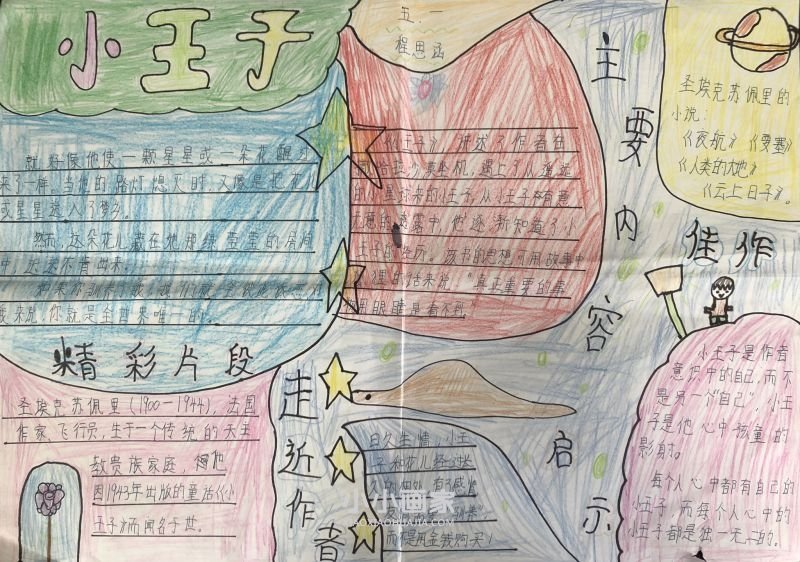 小王子
五.一
程思涵
就好像他使一颗星星或一朵花醒过
来了一样。当他的路灯熄灭时,又像是把花儿
或星星送入了梦乡。
然而,这朵花儿藏在她那绿莹莹的房间
中,迟迟不肯出来。
要来说,你就是全世界唯一的。
精彩片段
《小王子》讲述了作者在
小王子的经历。该书的思想可用故事中
狸的话来说:“真正重要的事
用眼睛是看不到”
主要内容
圣埃克苏佩里的
小说:
《夜航》《要塞》
《人类的大地》
《云上日子》。
佳作
圣埃克苏佩里(1900-1944),法国
作家、飞行员,生于一个传统的天主
教贵族家庭,他
因1943年出版的童话《小
王子》而闻名于世。
走近作者
日久生情,小王
子和花儿经过长
而不是用金钱购买!
启示
小王子是作者
意识中的自己,而不
是另一个“自己”,小王
子是他心中孩童的
影射。
每个人心中都有自己的
小王子,而每个人心中的
小王子都是独一无二的。
小小画家
XIAOXIAOHUAJIA.COM